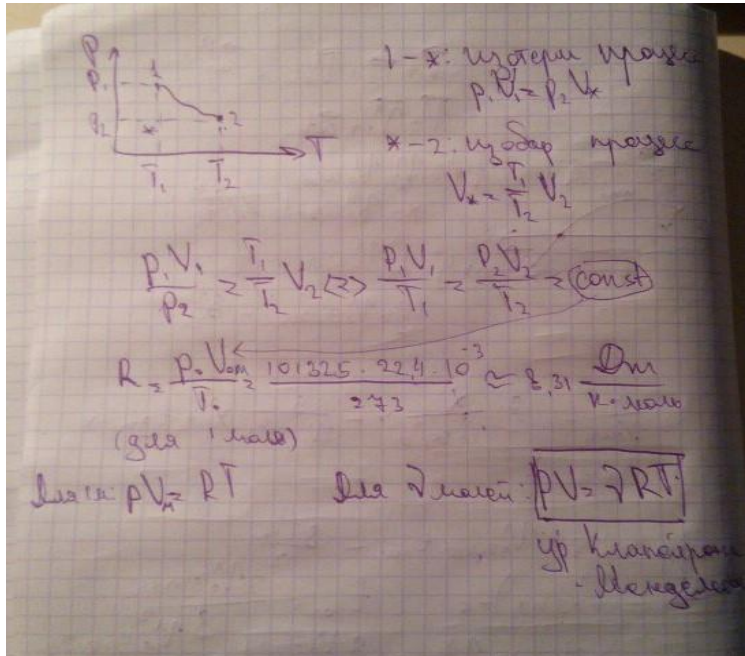 P
P₁ 1
P₂ * 2
T₁ T₂ T
1-*: изотерм процесс
p₁V₁ = p₂Vₓ
*-2: изобар процесс
Vₓ = T₁/T₂ V₂
p₁V₁/p₂ = T₁/T₂ V₂ <=> p₁V₁/T₁ = p₂V₂/T₂ = const
R = p₀V₀m/T₀ = 101325 · 22,4 · 10⁻³/273 ≈ 8,31 Дж/К·моль
(для 1 моля)
Для 1 м: pVм = RT Для ν молей: pV = νRT
ур. Клапейрона
- Менделеева